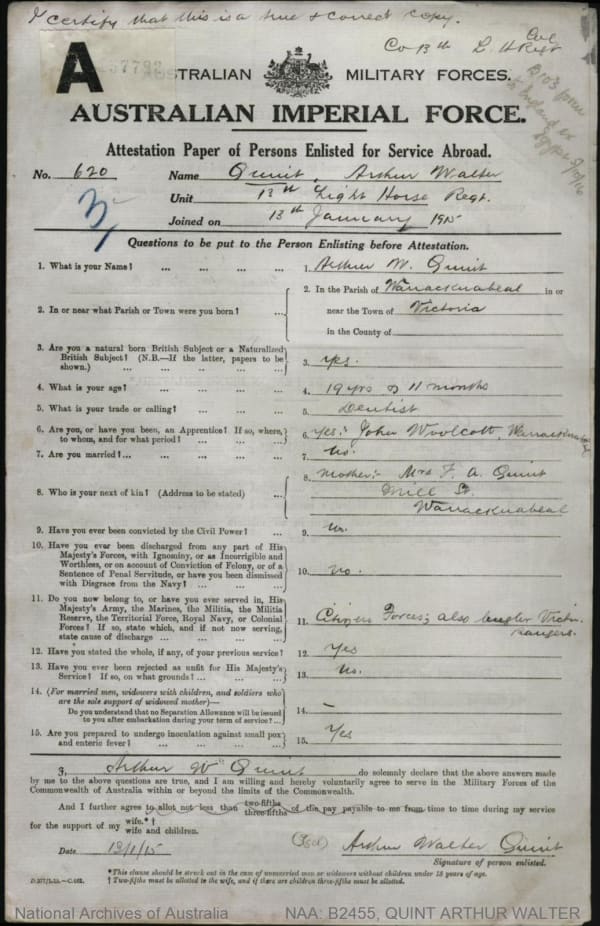 I certify that this is a true & correct copy.
Co 13th L. H Regt
A
AUSTRALIAN MILITARY FORCES.
AUSTRALIAN IMPERIAL FORCE.
Attestation Paper of Persons Enlisted for Service Abroad.
No. 620 Name Quint, Arthur Walter
Unit 13th Light Horse Regt.
Joined on 13th January 1915
Questions to be put to the Person Enlisting before Attestation.
1. What is your Name? ... ... ... ... 1. Arthur W. Quint
2. In or near what Parish or Town were you born? ... 2. In the Parish of Warracknabeal in or
near the Town of Victoria
in the County of
3. Are you a natural born British Subject or a Naturalized
British Subject? (N.B.—If the latter, papers to be
shown.) ... ... ... ... 3. yes.
4. What is your age? ... ... ... ... 4. 19 yrs & 11 months
5. What is your trade or calling? ... ... ... 5. Dentist
6. Are you, or have you been, an Apprentice? If so, where,
to whom, and for what period? ... ... ... 6. yes:- John Woolcott, Warracknabeal
7. Are you married?... ... ... ... 7. no.
8. Who is your next of kin? (Address to be stated) ... 8. mother:- Mrs F. A. Quint
Mill St.
Warracknabeal
9. Have you ever been convicted by the Civil Power? ... 9. no.
10. Have you ever been discharged from any part of His
Majesty's Forces, with Ignominy, or as Incorrigible and
Worthless, or on account of Conviction of Felony, or of a
Sentence of Penal Servitude, or have you been dismissed
with Disgrace from the Navy? ... ... ... 10. no.
11. Do you now belong to, or have you ever served in, His
Majesty's Army, the Marines, the Militia, the Militia
Reserve, the Territorial Force, Royal Navy, or Colonial
Forces? If so, state which, and if not now serving,
state cause of discharge ... ... ... ... 11. Citizens Forces; also bugler Victn.
Rangers.
12. Have you stated the whole, if any, of your previous service? 12. Yes
13. Have you ever been rejected as unfit for His Majesty's
Service? If so, on what grounds? ... ... ... 13. no.
14. (For married men, widowers with children, and soldiers who
are the sole support of widowed mother)—
Do you understand that no Separation Allowance will be issued
to you after embarkation during your term of service? ... 14. –
15. Are you prepared to undergo inoculation against small pox
and enteric fever? ... ... ... ... 15. Yes
I, Arthur Wr Quint do solemnly declare that the above answers made
by me to the above questions are true, and I am willing and hereby voluntarily agree to serve in the Military Forces of the
Commonwealth of Australia within or beyond the limits of the Commonwealth.
And I further agree to allot not less than two-fifths three-fifths of the pay payable to me from time to time during my service
for the support of my wife.*† wife and children.
Date 13/1/15 (Sgd) Arthur Walter Quint
Signature of person enlisted.
*This clause should be struck out in the case of unmarried men or widowers without children under 18 years of age.
† Two-fifths must be allotted to the wife, and if there are children three-fifths must be allotted.
National Archives of Australia NAA: B2455, QUINT ARTHUR WALTER